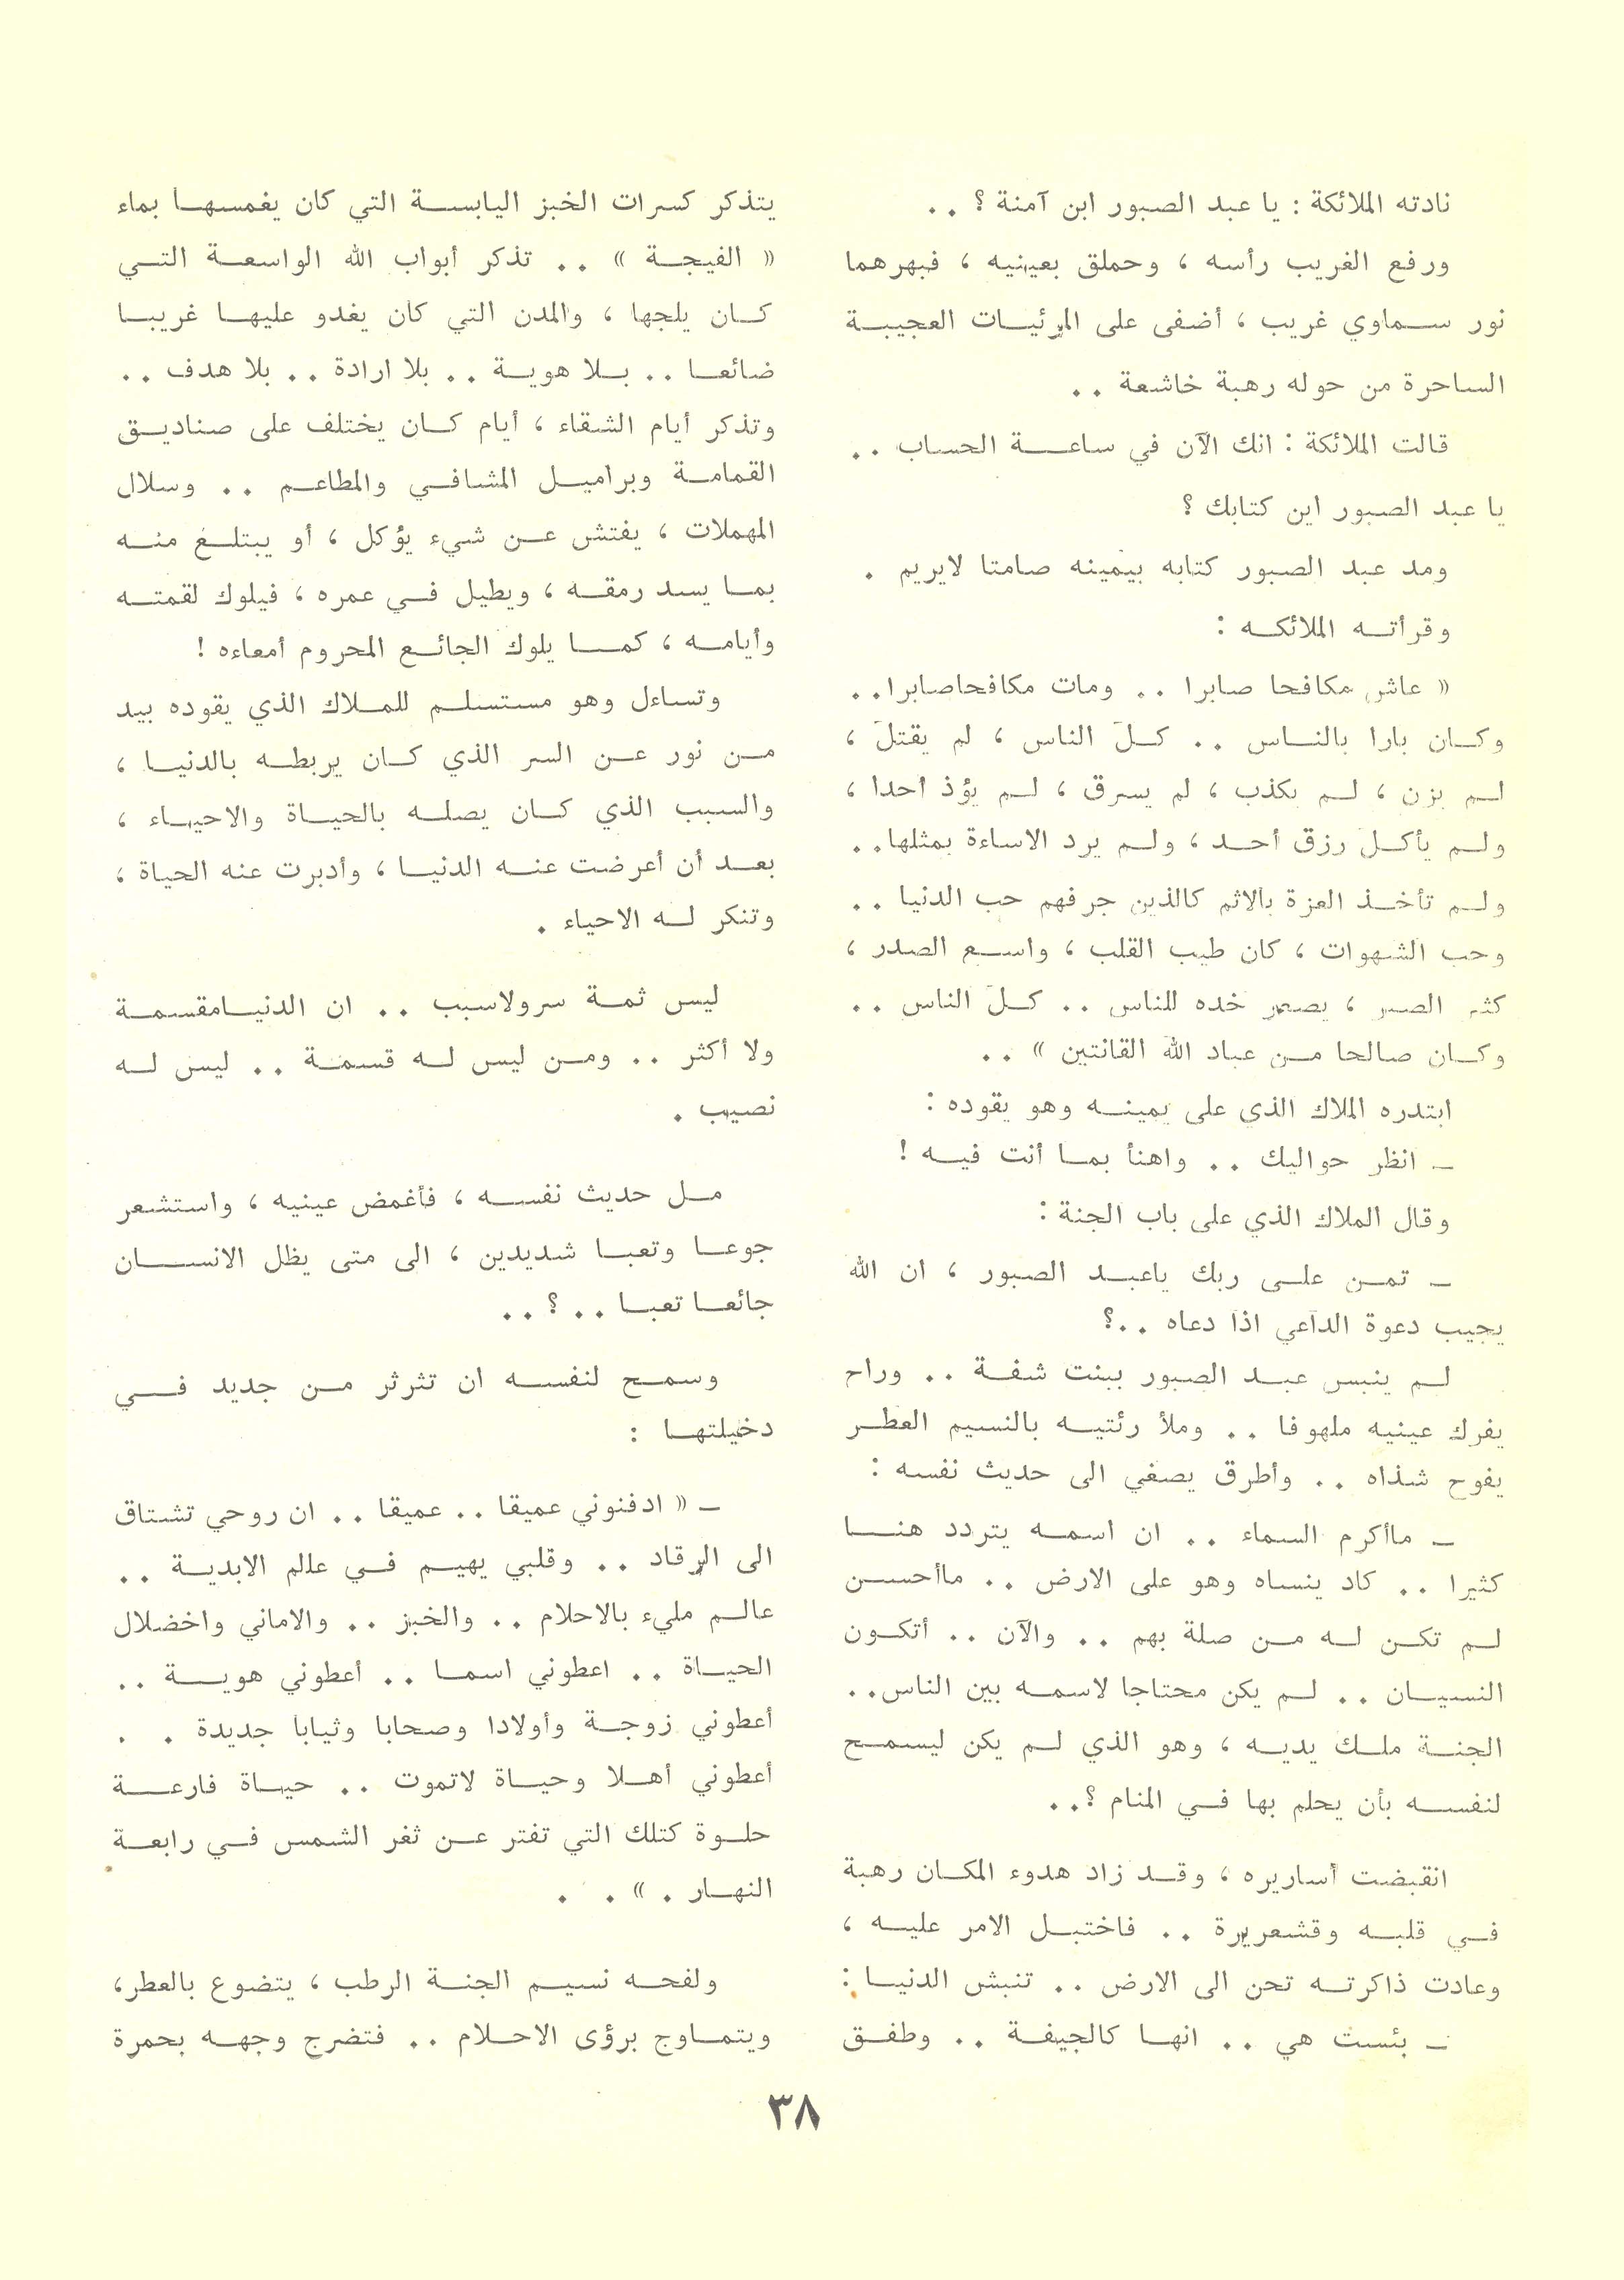 نادته الملائكة : يا عبد الصبور ابن آمنة ؟ . .
ورفع الغريب رأسه ، وحملق بعينيه ، فبهرهما
نور سماوي غريب ، أضفى على المرئيات العجيبة
الساحرة من حوله رهبة خاشعة . .
قالت الملائكة : انك الآن في ساعة الحساب . .
يا عبد الصبور اين كتابك ؟
ومد عبد الصبور كتابه بيمينه صامتا لايريم .
وقرأته الملائكه :
« عاش مكافحا صابرا . . ومات مكافحاصابرا . .
وكان بارا بالناس . . كل الناس ، لم يقتل ،
لم يزن ، لم يكذب ، لم يسرق ، لم يؤذ أحدا ،
ولم يأكل رزق أحد ، ولم يرد الاساءة بمثلها . .
ولم تأخذ العزة بالاثم كالذين جرفهم حب الدنيا . .
وحب الشهوات ، كان طيب القلب ، واسع الصدر ،
كثير الصبر ، يصعر خده للناس . . كل الناس . .
وكان صالحا من عباد الله القانتين » . .
ابتدره الملاك الذي على يمينه وهو يقوده :
ـ انظر حواليك . . واهنأ بما أنت فيه !
وقال الملاك الذي على باب الجنة :
ـ تمن على ربك ياعبد الصبور ، ان الله
يجيب دعوة الداعي اذا دعاه . . ؟
لم ينبس عبد الصبور ببنت شفة . . وراح
يفرك عينيه ملهوفا . . وملأ رئتيه بالنسيم العطر
يفوح شذاه . . وأطرق يصغي الى حديث نفسه :
ـ ماأكرم السماء . . ان اسمه يتردد هنا
كثيرا . . كاد ينساه وهو على الارض . . ماأحسن
لم تكن له من صلة بهم . . والآن . . أتكون
النسيان . . لم يكن محتاجا لاسمه بين الناس . .
الجنة ملك يديه ، وهو الذي لم يكن ليسمح
لنفسه بأن يحلم بها في المنام ؟ . .
انقبضت أساريره ، وقد زاد هدوء المكان رهبة
في قلبه وقشعريرة . . فاختبل الامر عليه ،
وعادت ذاكرته تحن الى الارض . . تنبش الدنيا :
ـ بئست هي . . انها كالجيفة . . وطفق
يتذكر كسرات الخبز اليابسة التي كان يغمسها بماء
« الفيجة » . . تذكر أبواب الله الواسعة التي
كان يلجها ، والمدن التي كان يغدو عليها غريبا
ضائعا . . بلا هوية . . بلا ارادة . . بلا هدف . .
وتذكر أيام الشقاء ، أيام كان يختلف على صناديق
القمامة وبراميل المشافي والمطاعم . . وسلال
المهملات ، يفتش عن شيء يؤكل ، أو يبتلغ منه
بما يسد رمقه ، ويطيل في عمره ، فيلوك لقمته
وأيامه ، كما يلوك الجائع المحروم أمعاءه !
وتساءل وهو مستسلم للملاك الذي يقوده بيد
من نور عن السر الذي كان يربطه بالدنيا ،
والسبب الذي كان يصله بالحياة والاحياء ،
بعد أن أعرضت عنه الدنيا ، وأدبرت عنه الحياة ،
وتنكر له الاحياء .
ليس ثمة سرولاسبب . . ان الدنيامقسمة
ولا أكثر . . ومن ليس له قسمة . . ليس له
نصيب .
مل حديث نفسه ، فأغمض عينيه ، واستشعر
جوعا وتعبا شديدين ، الى متى يظل الانسان
جائعا تعبا . . ؟ . .
وسمح لنفسه ان تثرثر من جديد في
دخيلتها :
ـ « ادفنوني عميقا . . عميقا . . ان روحي تشتاق
الى الرقاد . . وقلبي يهيم في عالم الابدية . .
عالم مليء بالاحلام . . والخبز . . والاماني واخضلال
الحياة . . اعطوني اسما . . أعطوني هوية . .
أعطوني زوجة وأولادا وصحابا وثيابا جديدة . .
أعطوني أهلا وحياة لاتموت . . حياة فارعة
حلوة كتلك التي تفتر عن ثغر الشمس في رابعة
النهار . » . .
ولفحه نسيم الجنة الرطب ، يتضوع بالعطر ،
ويتماوج برؤى الاحلام . . فتضرج وجهه بحمرة
٣٨